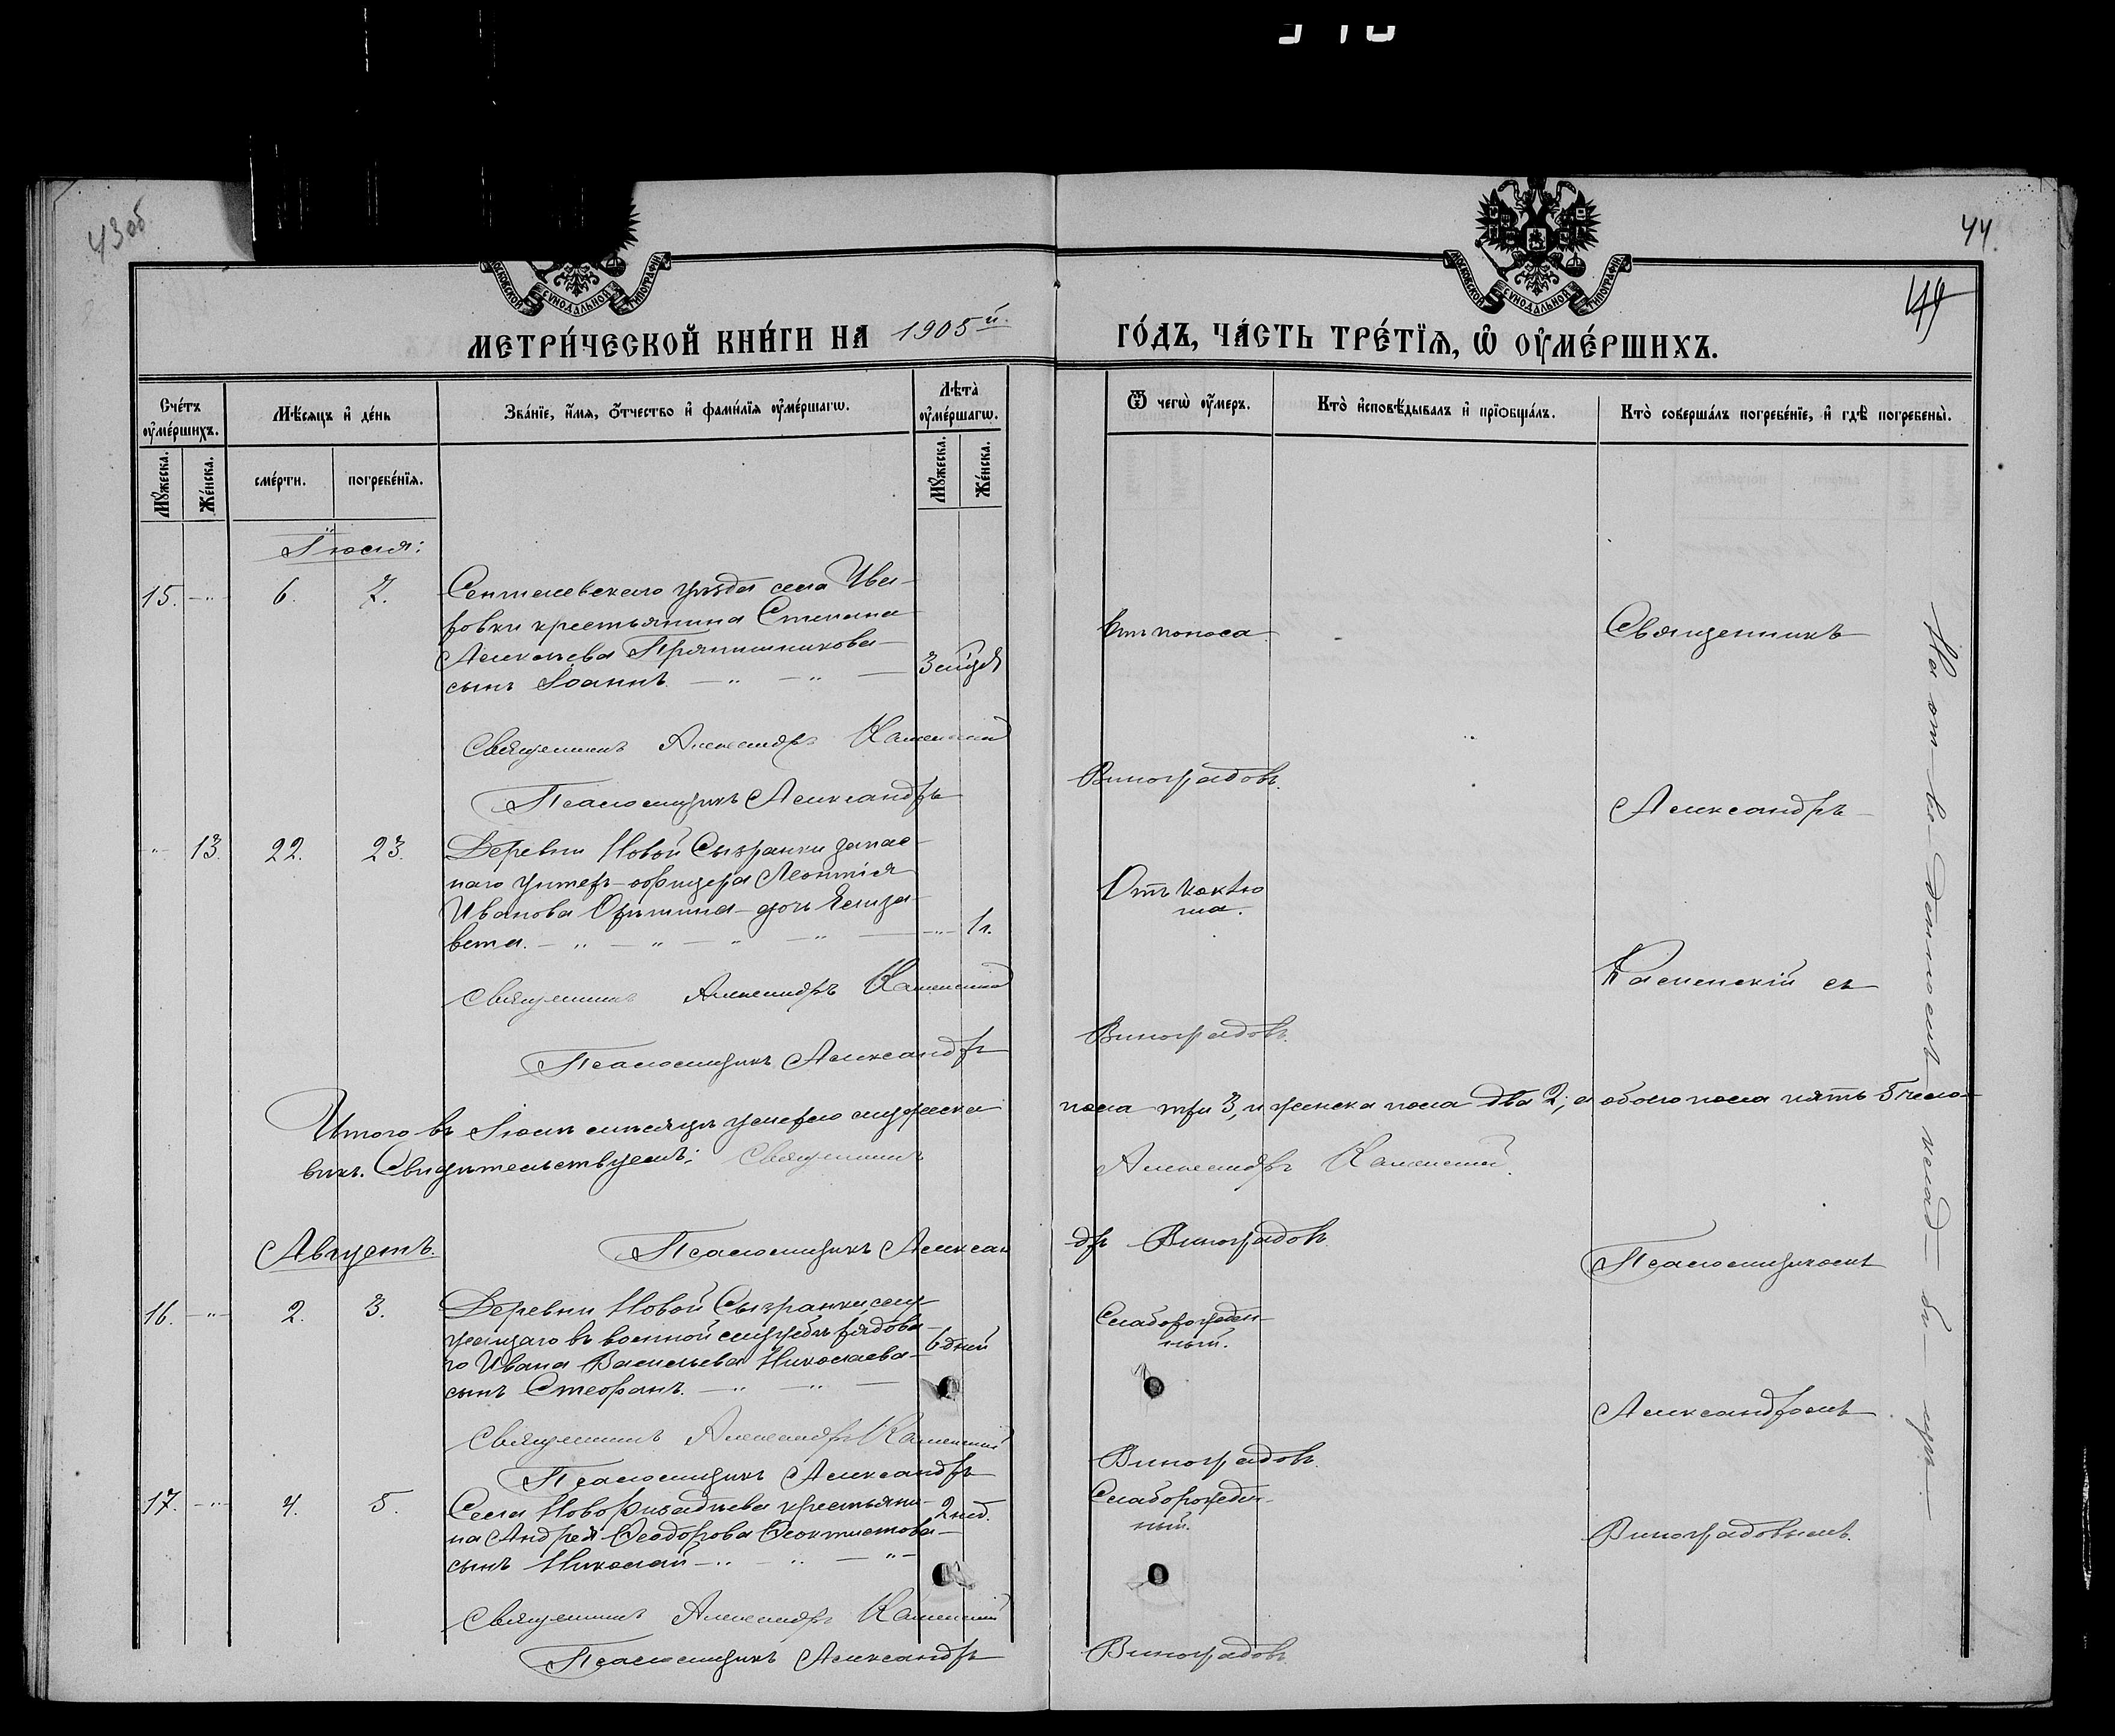 43 об.
44.
МОСКОВСКОЙ СѴНОДАЛЬНОЙ ТИПОГРАФІИ
МОСКОВСКОЙ СѴНОДАЛЬНОЙ ТИПОГРАФІИ
МЕТРИ́ЧЕСКОЙ КНИ́ГИ НА 1905й
ГО́ДЪ, ЧА́СТЬ ТРЕ́ТЇѦ, Ѡ҆ ОУ҆МЕ́РШИХЪ.
Сче́тъ оу҆ме́ршихъ.
Мꙋ́жеска.
Же́нска.
Мѣ́сяцъ и҆ де́нь
сме́рти.
погребе́нїѧ.
Зва́нїе, и҆́мя, ѻ҆́тчество и҆ фами́лїѧ оу҆ме́ршагѡ.
Лѣ́та оу҆ме́ршагѡ.
Мꙋ́жеска.
Же́нска.
Ѿ чегѡ̀ оу҆́меръ.
Кто̀ и҆сповѣ́дывалъ и҆ прїѡбща́лъ.
Кто̀ соверша́лъ погребе́нїе, и҆ гдѣ̀ погребены̀.
Іюля:
15. -"- 6. 7. Сенгилевскаго уѣзда села
крестьянина Степана
Алексѣева Прянишникова
сынъ Іоаннъ. - " - " -
3 мѣся
Отъ поноса
Священникъ
Священникъ Александръ Каменскій
Псаломщикъ Александръ Виноградовъ.
Александръ
" 13. 22. 23. Деревни Новой Сызранки запас-
наго унтер-офицера Леонтія
Иванова дочь Елиза-
вета. - " - " - " - " - " 1 г.
Отъ коклю
ша.
Священникъ Александръ Каменскій
Каменскій съ
Псаломщикъ Александръ Виноградовъ.
Итого въ Іюлѣ мѣсяцѣ умерло мужеска пола три 3, и женска пола два 2, а обоего пола пять 5 чело-
вѣкъ. Свидѣтельствуемъ: Священникъ Александръ Каменскій.
Псаломщикъ Александръ Виноградовъ
Августъ.
Псаломщикомъ
16. -"- 2. 3. Деревни Новой Сызранки, слу-
жащаго въ военной службѣ рядова-
го Ивана Васильева Николаева
сынъ Стефанъ. - " - " -
6 дней
Слаборожден-
ный.
Александромъ
Священникъ Александръ Каменскій
Псаломщикъ Александръ Виноградовъ.
17. -"- 4. 5. Села крестьяни-
на Андрея Ѳеодорова Ѳеоктистова
сынъ Николай - " - " - " -
2 нед.
Слаборожден-
ный.
Виноградовымъ.
Священникъ Александръ Каменскій
Псаломщикъ Александръ Виноградовъ